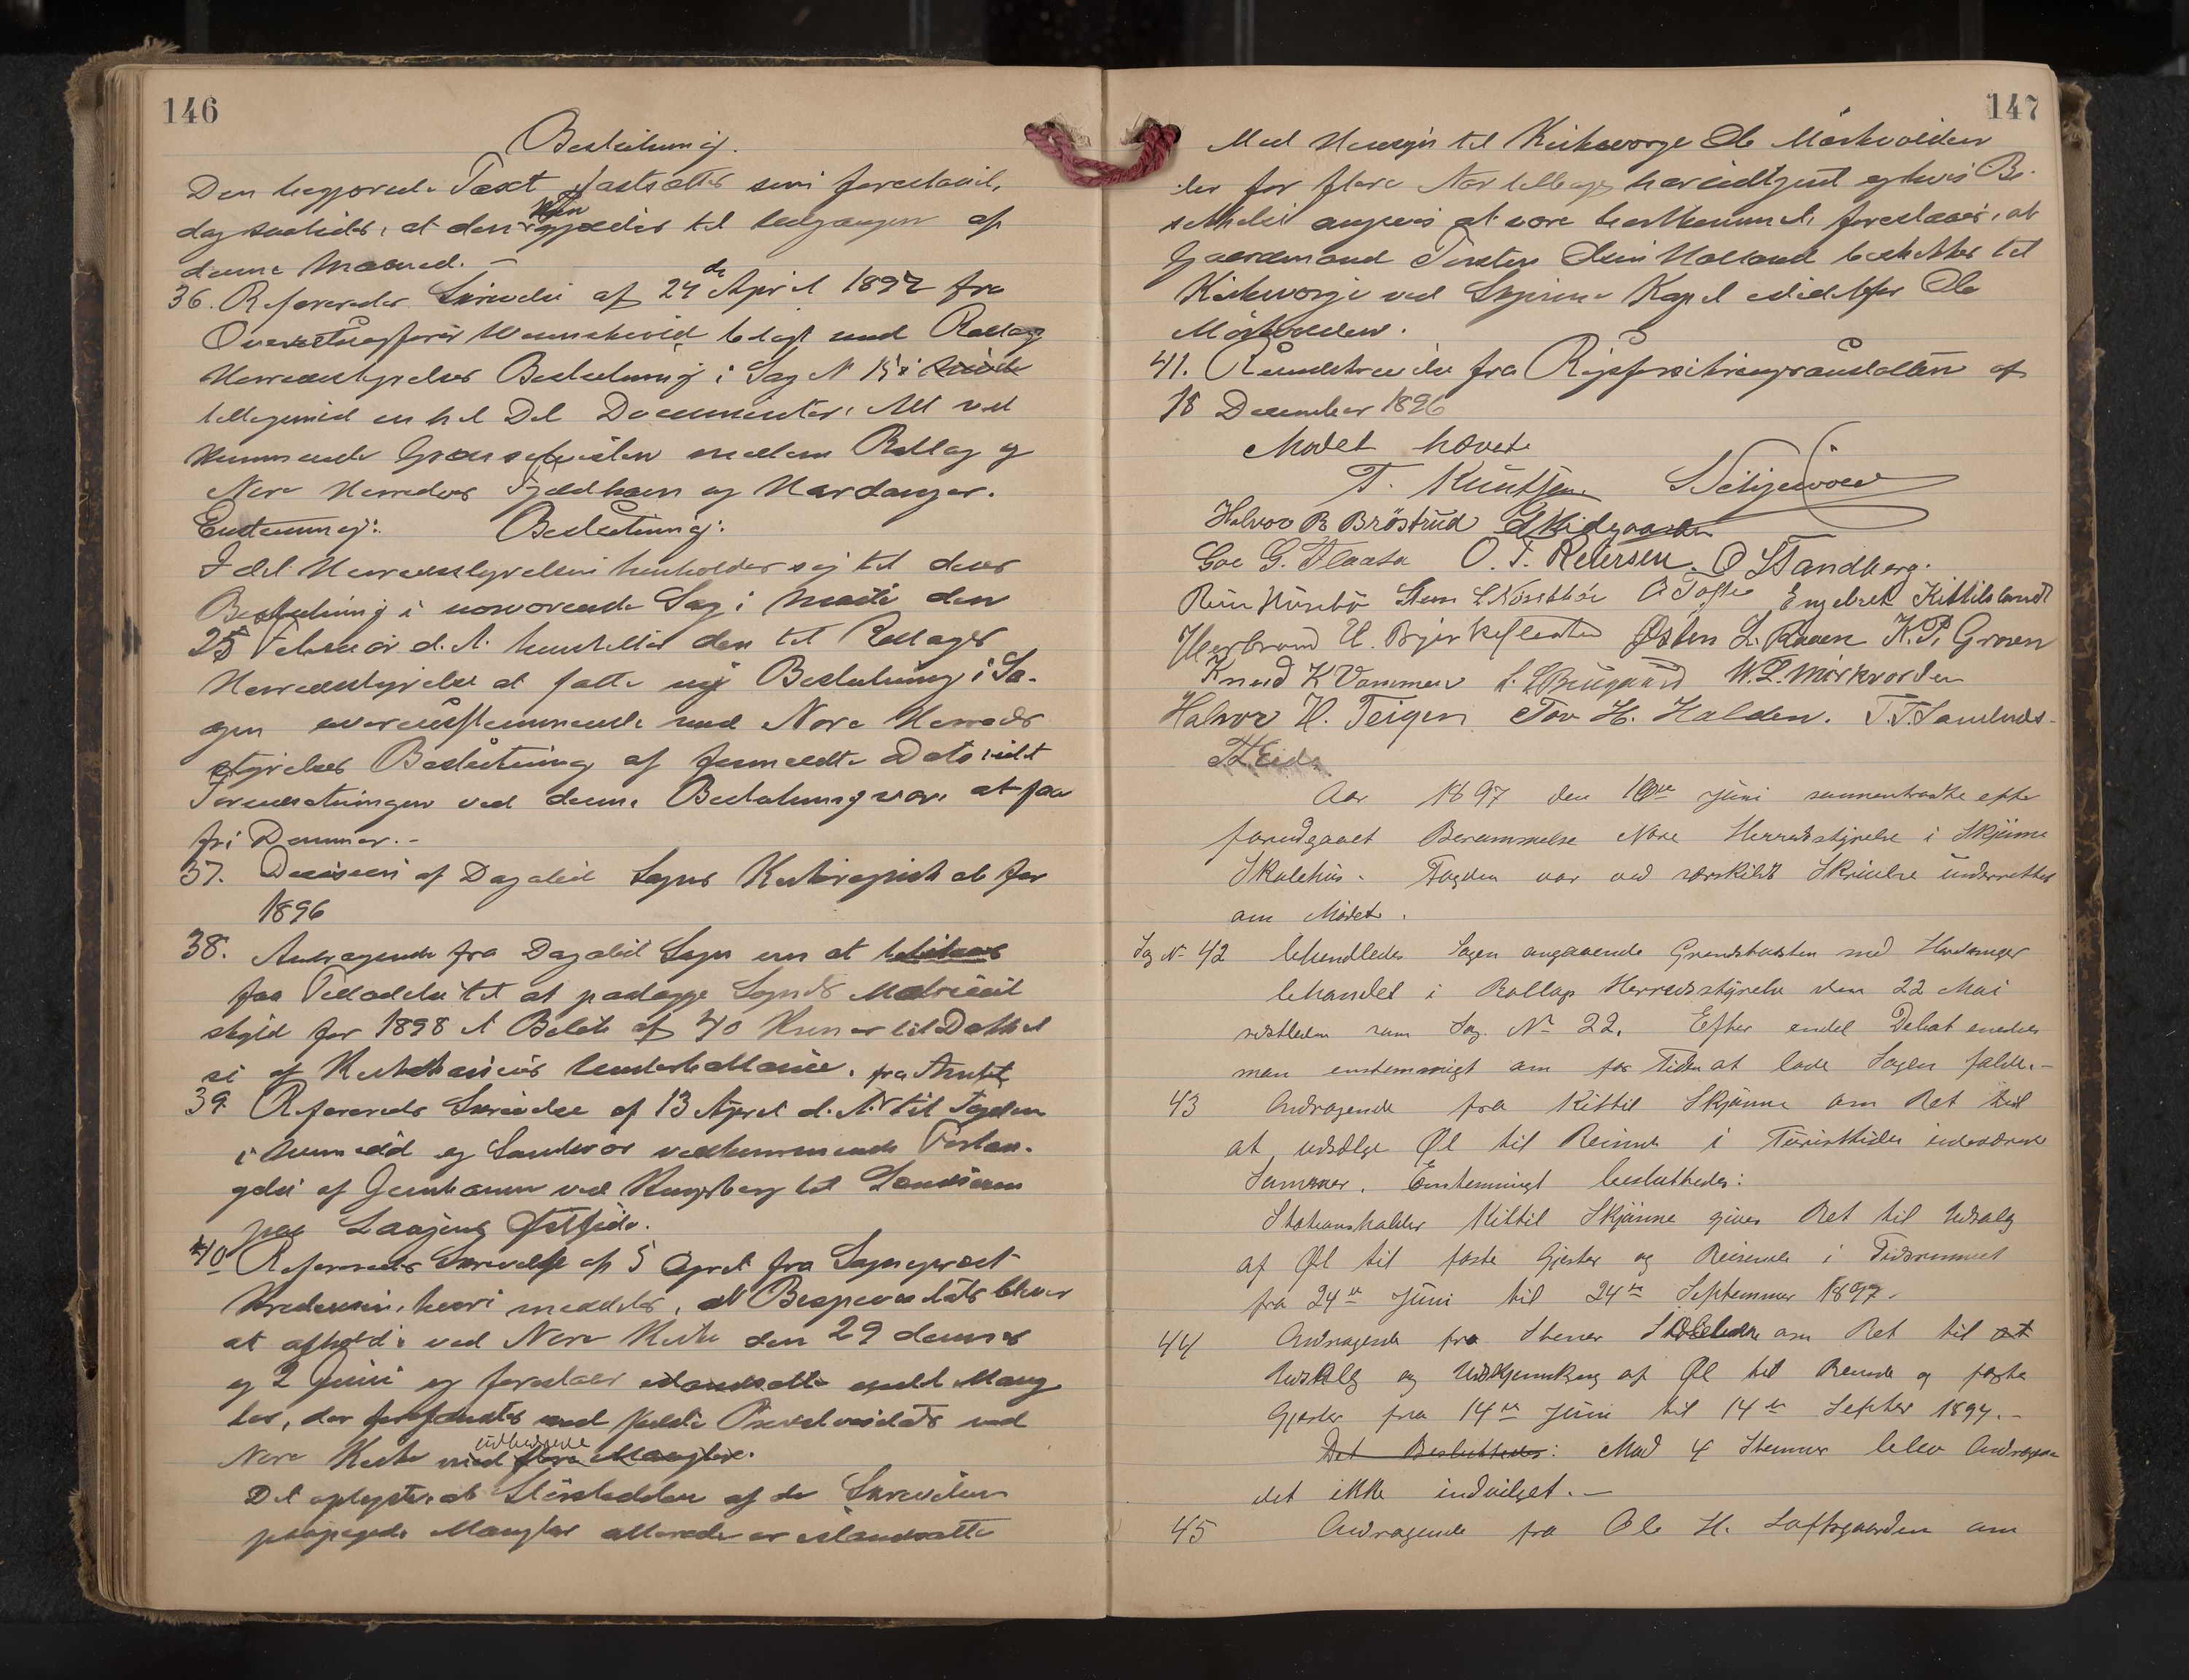 146
Beslutning.
Den begjærede Taxt fastsættes som foreslaaet,
dog saaledes, at den kun gjælder til Udgangen af
denne Maaned. —
36. Refereredes Skrivelse af 24de April 1897 fra
Overretssagfører bilagt med Rollag
Herredsstyrelses Beslutning i Sag N 15
tilligemed en hel Del Documenter, Alt ved
kommende Grænseskillen mellem Rollag og
Nore Herreders Fjeldhavn og Hardanger.
Enstemmig: Beslutning:
Idet Herredsstyrelsen henholder sig til deres
Beslutning i nærværende Sag i Møde den
25 Februar d. A. henstilles den til Rollags
Herredsstyrelse at fatte ny Beslutning i Sa-
gen overensstemmende med Nore Herreds-
styrelses Beslutning af formeldte Dato idet
Forudsætningen ved denne Beslutning var, at faa
fri Dommer. -
37. Decision af Dagalid Sogns Kirkeregnskab for
1896
38. Andragende fra Dagalid Sogn om at
faa Tilladelse til at paalægge Sognets Matricul
skyld for 1898 et Beløb af 40 Kroner til Dækkel
se af Kirkekassens Underballance.
39. Refereredes Skrivelse af 13 April d. A. fra Amtet til Fogden
i Numedal og Sandsvær vedkommende Forlæn-
gelse af Jernbanen ved Kongsberg til
paa Laagens Østside.
40 Refereredes Skrivelse af 5 April fra Sogneprest
, hvori meddeles, at Besigtelse bliver
at afholde ved Nore Kirke den 29 dennes
og 2 Juni og foreslaar endel Mang
ler, der forefandtes ved sidste ved
Nore Kirke udbedrede
Det oplystes, at Størstedelen af de i Skrivelsen
paapegede Mangler allerede er istandsatte
147
Med Hensyn til Kirkeværge Ole Mørkvolden
der for flere Aar tilbage har udtjent og hvis Be-
skikkelse angives at være bortkommet, foreslaaes, at
Gaardmand Torsten Halland beskikkes til
Kirkeværge ved Skjønne Kapel istedetfor Ole
Mørkvolden.
41. Rundskrivelse fra Rigsforsikringsanstalten af
18 December 1896
Mødet hævet
T. Knutsen
Halvor B Brøstrud
Goe G. Flaata O. T. Petersen. O Strandberg.
A Tofte Engebret Kittilsland
Herbrand H. Bjerkeflaata Østen L. Raaen K. P. Groven
Knud K Vammen W. L. Mørkvorden
Halvor H. Teigen Tov H. Halden.
Aar 1897 den 10de Juni sammentraadte efter
forudgaaet Berammelse Nore Herredsstyrelse i Skjønne
Skolehus. Fogden var ved særskildt Skrivelse underrettet
om Mødet.
Sag N- 42 behandledes Sagen angaaende Grændsetvisten med Hardanger
behandlet i Rollag Herredsstyrelse den 22 Mai
sidstleden som Sag. No 22. Efter endel Debat enedes
man enstemmigt om for Tiden at lade Sagen falde. -
43 Andragende fra Kittil Skjønne om Ret til
at udsælge Øl til Reisende i Turisttiden indeværende
Sommer. Enstemmigt besluttedes:
Stationsholder Kittil Skjønne gives Ret til Udsalg
af Øl til faste Gjester og Reisende i Tidsrummet
fra 24de Juni til 24de Septemmer 1897 -
44 Andragende fra Stener om Ret til at
Udsalg og Udskjænkning af Øl til Reisende og faste
Gjester fra 14de Juni til 14de Septber 1897. -
Det Besluttedes: Mod 4 Stemmer blev Andragen
det ikke indvilget. -
45 Andragende fra Ole H. Loftsgaarden om